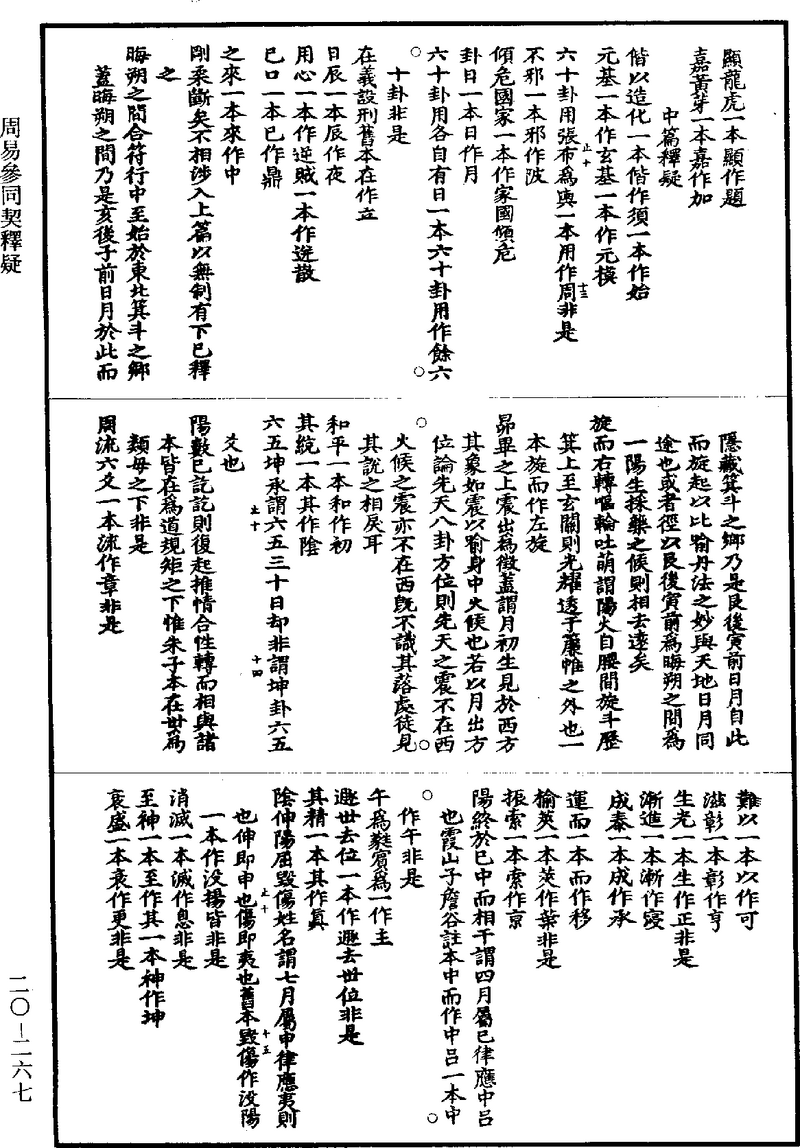 周易參同契釋疑
顯龍虎一本顯作題
嘉黃芽一本嘉作加
中篇釋疑
偕以造化一本偕作須一本作始
元基一本作玄基一本作元模
六十卦用張布為輿一本用作周非是
不邪一本邪作陂
傾危國家一本作家國傾危
卦日一本日作月
六十卦用各自有日一本六十卦用作餘六
十卦非是
在義設刑舊本在作立
日辰一本辰作夜
用心一本作逆賊一本作逆散
已口一本已作鼎
之來一本來作中
剛柔斷矣不相涉入上篇以無制有下已釋
之
晦朔之間合符行中至始於東北箕斗之鄉
蓋晦朔之間乃是亥後子前日月於此而
隱藏箕斗之鄉乃是艮後寅前日月自此
而旋起以比喻丹法之妙與天地日月同
途也或者徑以艮後寅前為晦朔之間為
一陽生採藥之候則相去遠矣
旋而右轉嘔輪吐萌謂陽火自腰間旋斗歷
箕上至玄關則光耀透子簾帷之外也一
本旋而作左旋
昴畢之上震出為徵蓋謂月初生見於西方
其象如震以喻身中火候也若以月出方
位論先天八卦方位則先天之震不在西
火候之震亦不在西旣不識其落處徒見
其說之相戾耳
和平一本和作初
其統一本其作陰
六五坤承謂六五三十日却非謂坤卦六五
爻也
陽數已訖訖則復起推情合性轉而相與諸
本皆在為道規矩之下惟朱子本在世為
類母之下非是
周流六爻一本流作章非是
難以一本以作可
滋彰一本彰作亨
生光一本生作正非是
漸進一本漸作寖
成泰一本成作承
運而一本而作移
榆莢一本莢作葉非是
振索一本索作京
陽終於巳中而相干謂四月屬巳律應中呂
也霞山子詹谷註本中而作中呂一本中
作午非是
午為蕤賓為一作主
遯世去位一本作遯去世位非是
其精一本其作眞
陰伸陽屈毀傷姓名謂七月屬申律應夷則
也伸即申也傷即夷也舊本毀傷作没陽
一本作没揚皆非是
消滅一本滅作息非是
至神一本至作其一本神作坤
衰盛一本衰作更非是
二〇-二六七